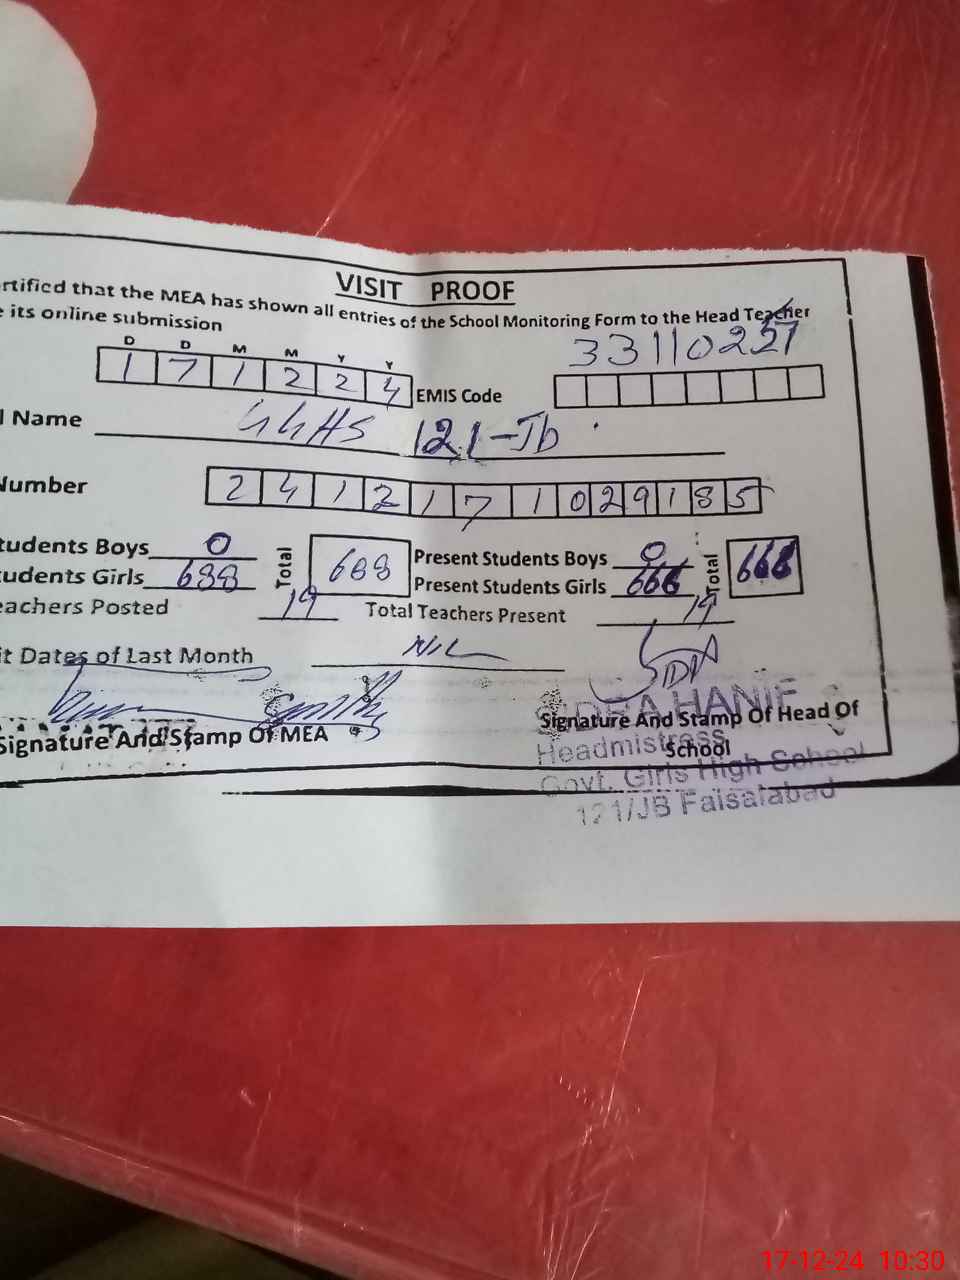 VISIT PROOF
rtified that the MEA has shown all entries of the School Monitoring Form to the Head Teacher
e its online submission
D D M M Y Y
1 7 1 2 2 4 EMIS Code 33110257
l Name GGHS 121-Jb
Number 2 4 1 2 1 7 1 0 2 9 1 8 5
tudents Boys 0 Total 688 Present Students Boys 0 Total 666
tudents Girls 688 Present Students Girls 666
eachers Posted 19 Total Teachers Present 19
it Dates of Last Month Nil
Signature And Stamp Of MEA
Signature And Stamp Of Head Of
School
HANIF
Headmistress
Govt. Girls High School
121/JB Faisalabad
17-12-24 10:30